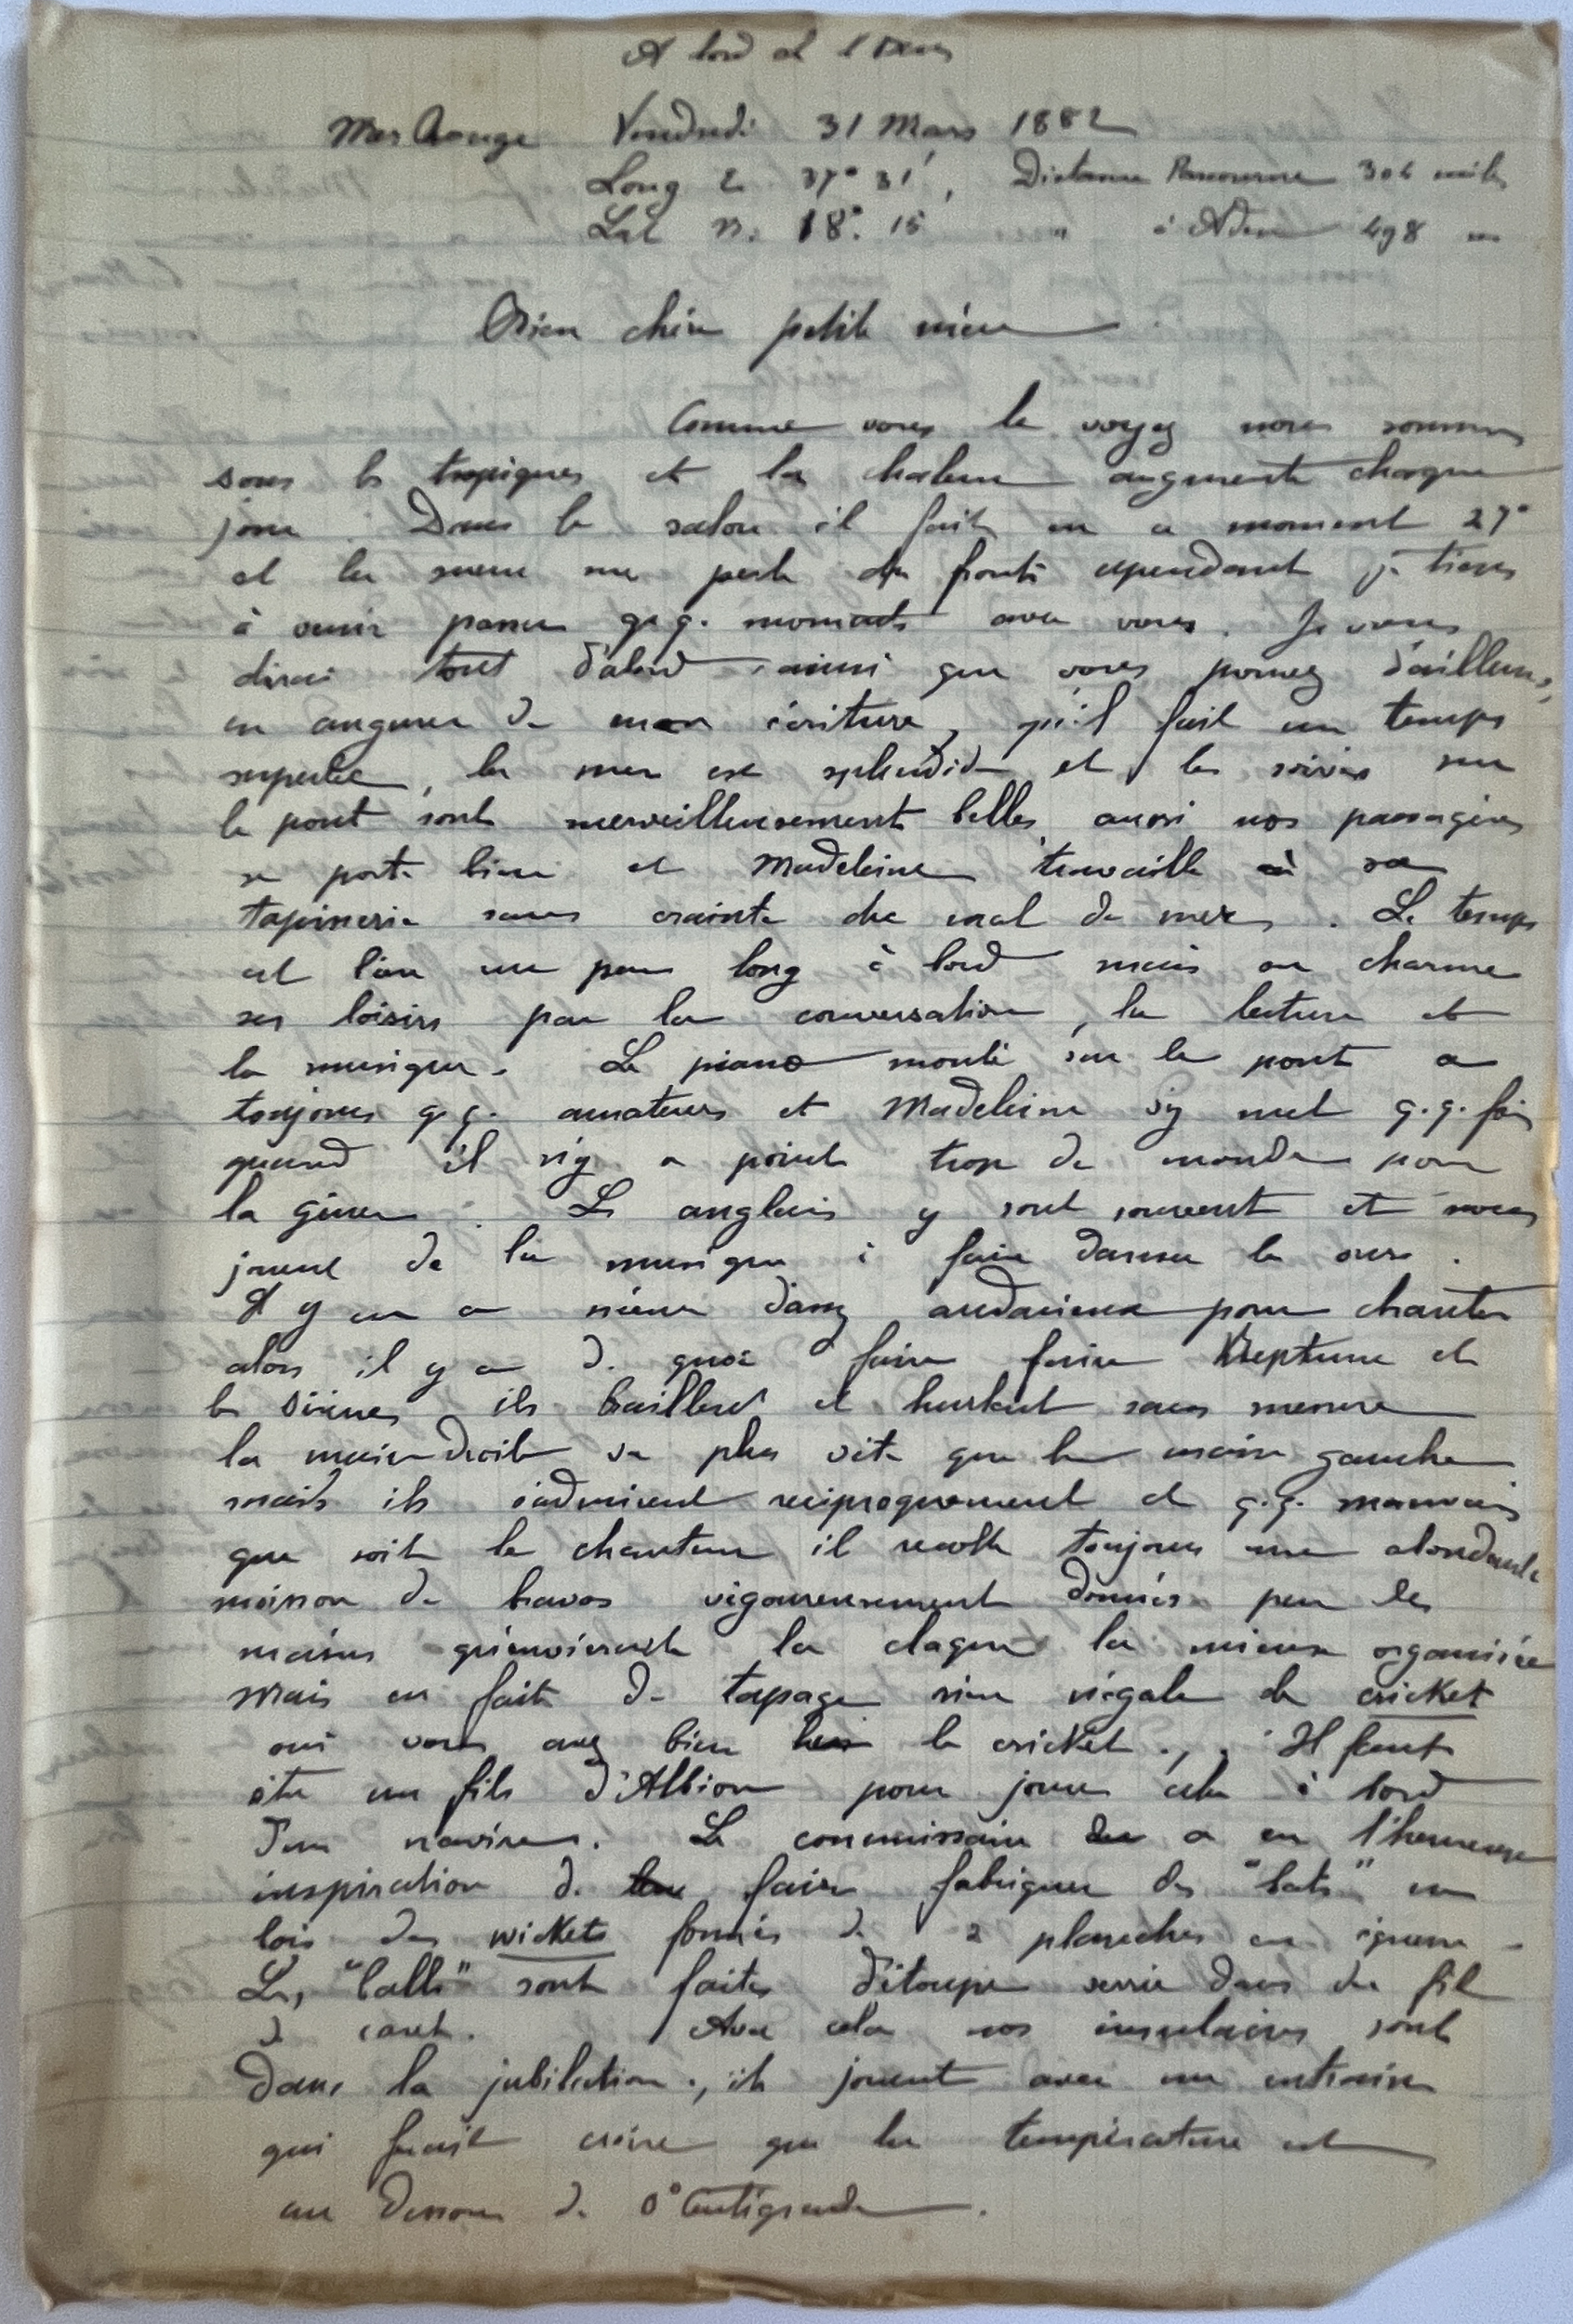 A bord de l'Oxus
Mer Rouge Vendredi 31 Mars 1882
Long E 37° 31', Distance Parcourue 306 miles
Lat N. 18°. 15 " à Aden 498 "
Bien chère petite mère
Comme vous le voyez nous sommes
sous les tropiques et la chaleur augmente chaque
jour. Dans le salon il fait en ce moment 27°
et la sueur me perle du front cependant je tiens
à venir passer q.q. moments avec vous. Je vous
dirai tout d'abord ainsi que vous pouvez d'ailleurs,
en augurer de mon écriture, qu'il fait un temps
superbe, la mer est splendide et les soirées sur
le pont sont merveilleusement belles aussi nos passagères
se porte bien et Madeleine travaille à sa
tapisserie sans crainte du mal de mer. Le temps
est bien un peu long à bord mais on charme
ses loisirs par la conversation, la lecture et
la musique. Le piano monté sur le pont a
toujours q.q. amateurs et Madeleine s'y met q.q. fois
quand il n'y a point trop de monde pour
la gêner. Les anglais y sont souvent et nous
jouent de la musique à faire danser les ours.
Il y en a même d'assez audacieux pour chanter
alors il y a de quoi faire fuir Neptune et
les sirènes ils braillent et hurlent sans mesure
la main droite va plus vite que la main gauche
mais ils s'admirent réciproquement et q.q. mauvais
que soit le chanteur il récolte toujours une abondante
moisson de bravos vigoureusement donnés par des
mains qu'envierait la claque la mieux organisée
Mais en fait de tapage rien n'égale le cricket
oui vous avez bien lu le cricket., Il faut
être un fils d'Albion pour jouer cela à bord
d'un navire. Le commissaire a eu l'heureuse
inspiration de faire fabriquer des "bats" en
bois des wickets formés de 2 planches en équerre -
Les "balls" sont faites d'étoupe serrée dans du fil
de caret. Avec cela nos insulaires sont
dans la jubilation., ils jouent avec un entrain
qui ferait croire que la température est
au dessous de 0° Centigrade.